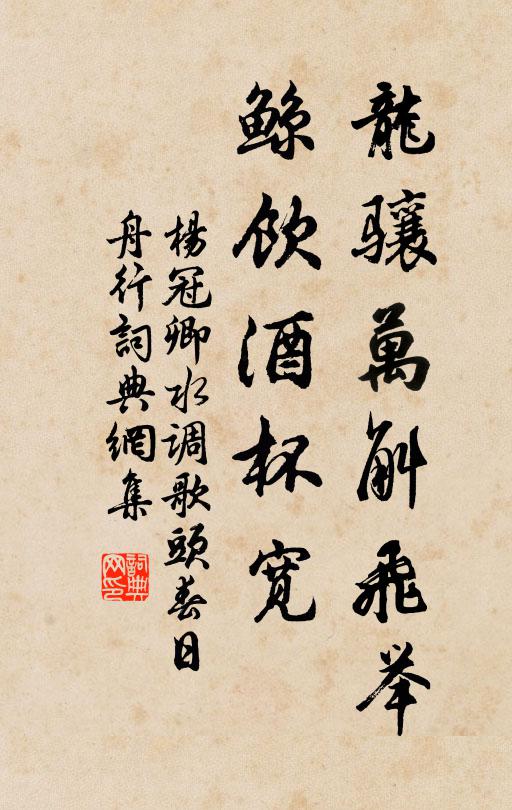 龍驤萬斛飛举
鯨飲酒杯寬
楊冠卿水调歌頭春日
舟行詞典網集
詞典
网印